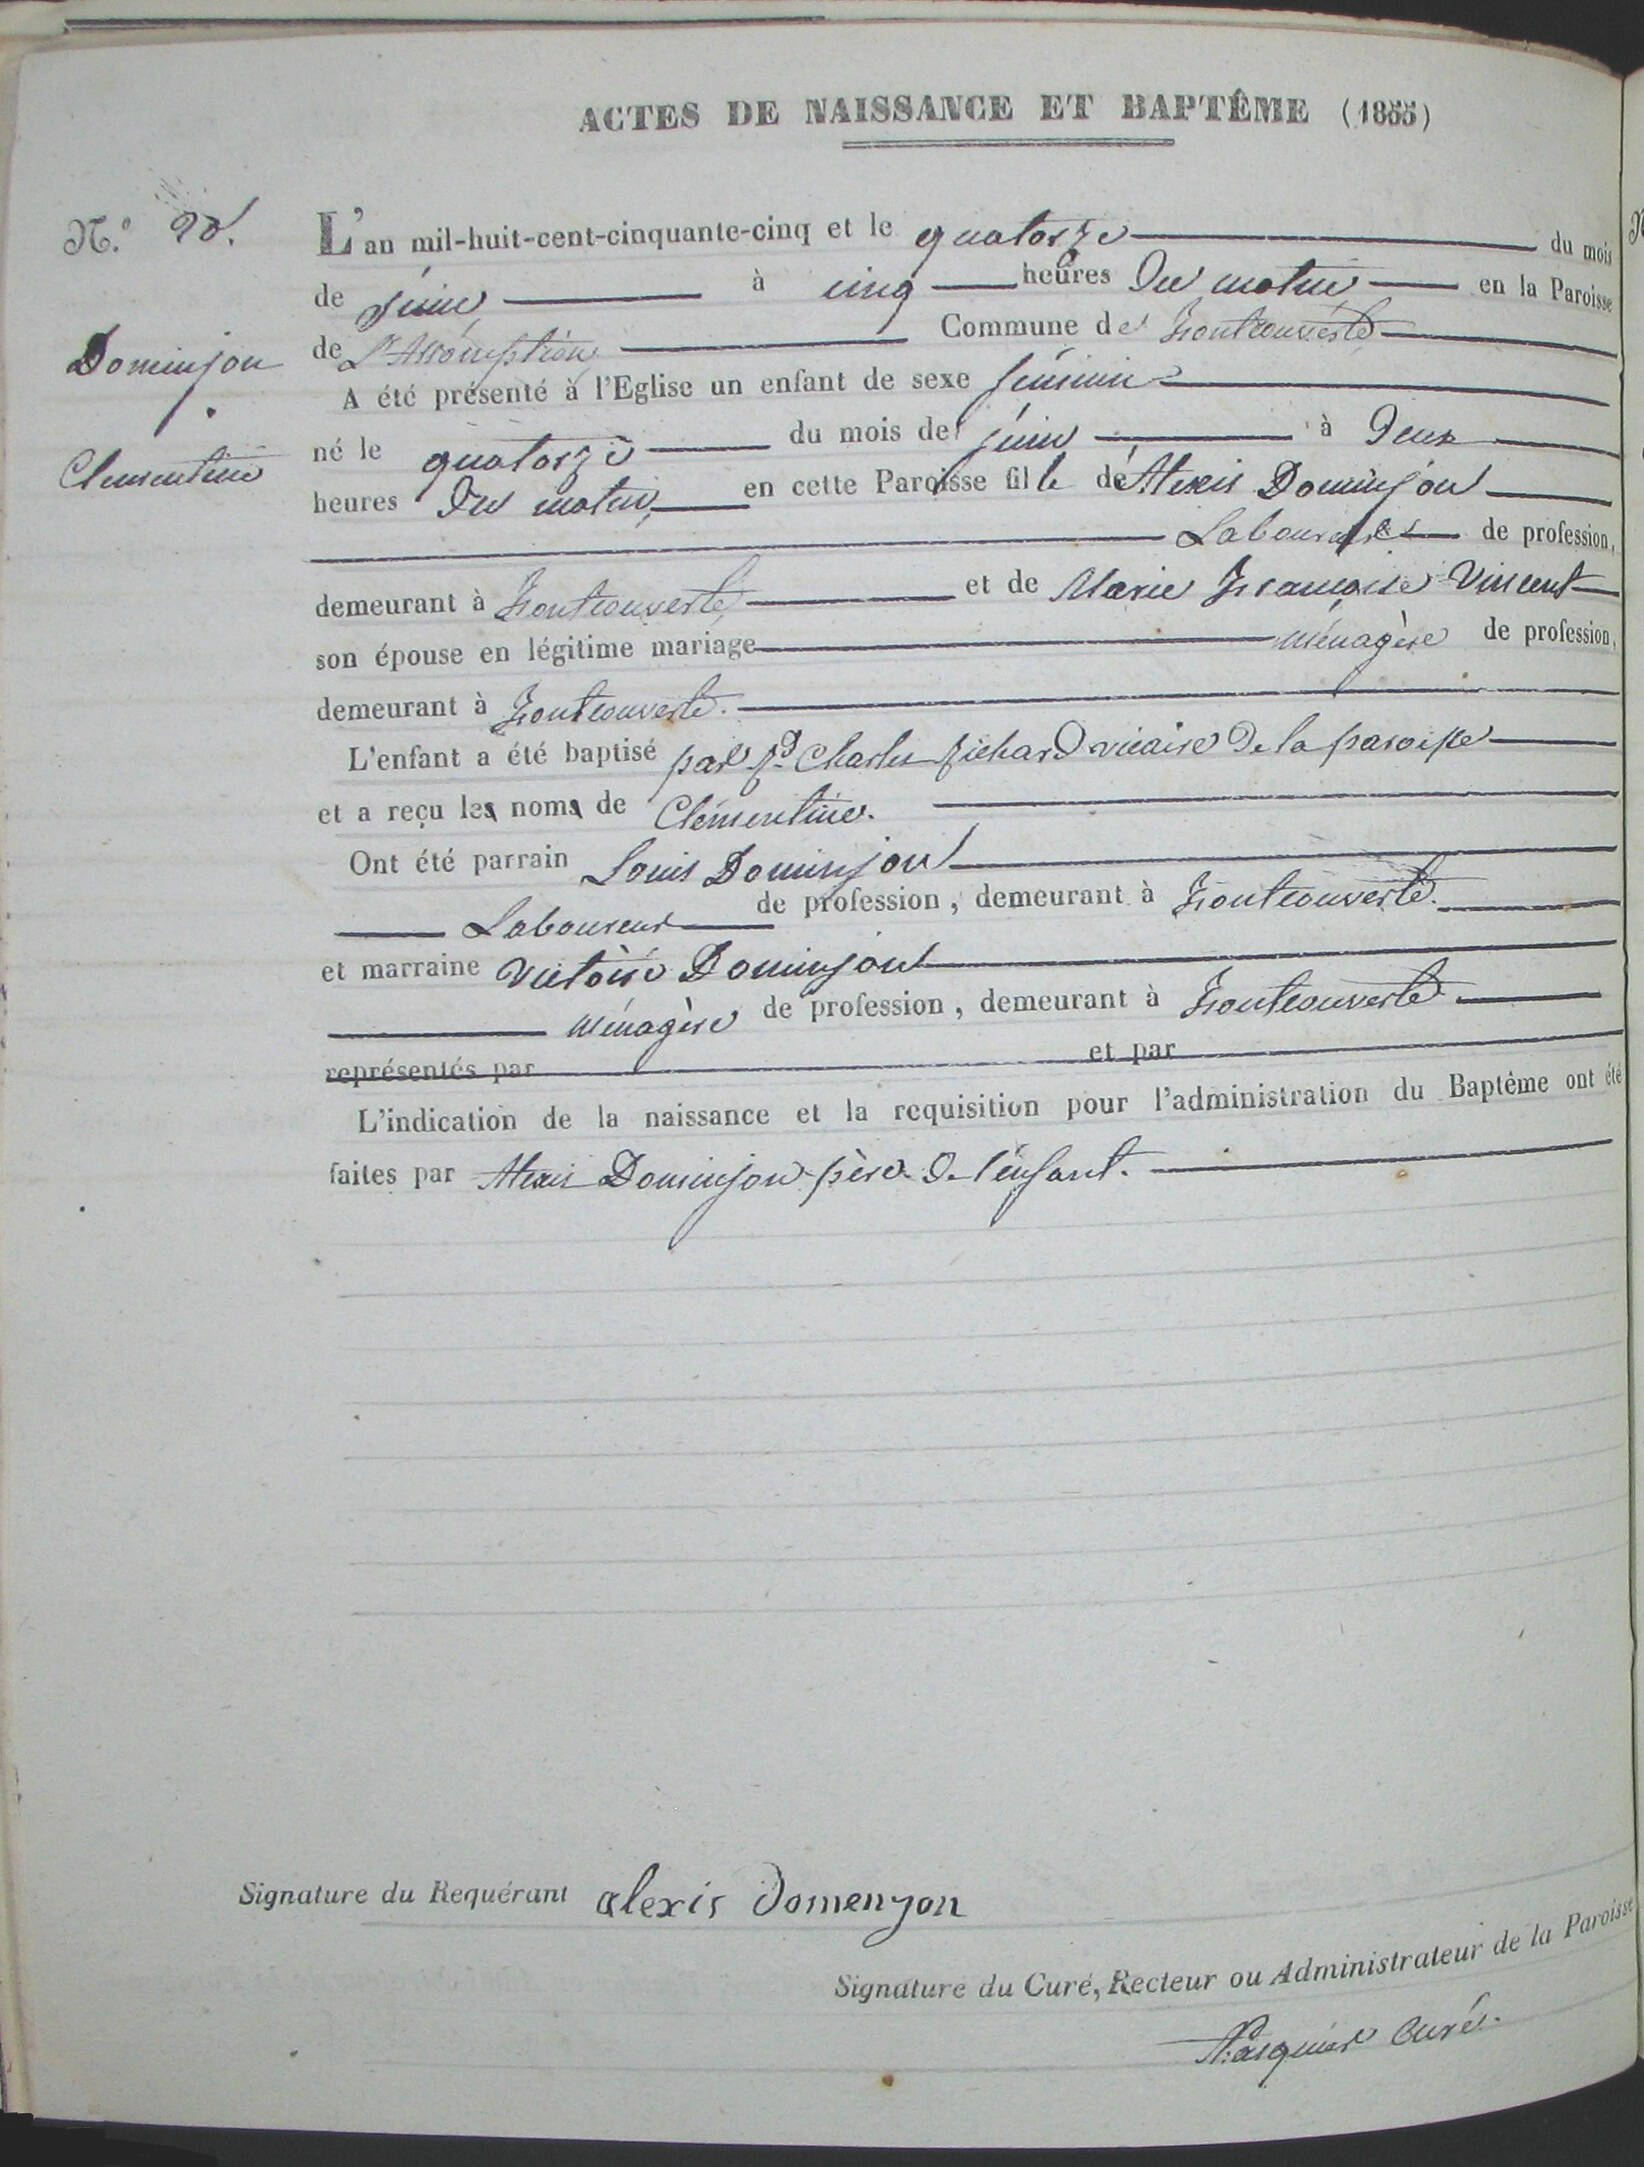 ACTES DE NAISSANCE ET BAPTÊME (1855)
N.º
L'an mil-huit-cent-cinquante-cinq et le quatorze du mois
de juin à cinq heures du matin en la Paroisse
de L'Assomption Commune de Frontcouverte
Dominjon
A été présenté à l'Eglise un enfant de sexe féminin
né le quatorze du mois de juin à deux
Clementine
heures du matin en cette Paroisse fille de Alexis Dominjon
Laboureur de profession,
demeurant à Fontcouverte et de Marie Françoise Vincent
son épouse en légitime mariage ménagère de profession,
demeurant à Fontcouverte.
L'enfant a été baptisé par Rd Charles Richard vicaire de la paroisse
et a reçu les noms de Clémentine.
Ont été parrain Louis Dominjon
Laboureur de profession, demeurant à Fontcouverte.
et marraine Victoire Dominjon
ménagère de profession, demeurant à Fontcouverte
représentés par et par
L'indication de la naissance et la requisition pour l'administration du Baptême ont été
faites par Alexis Dominjon père de l'enfant.
Signature du Requérant alexis Domenjon
Signature du Curé, Recteur ou Administrateur de la Paroisse
Curé.